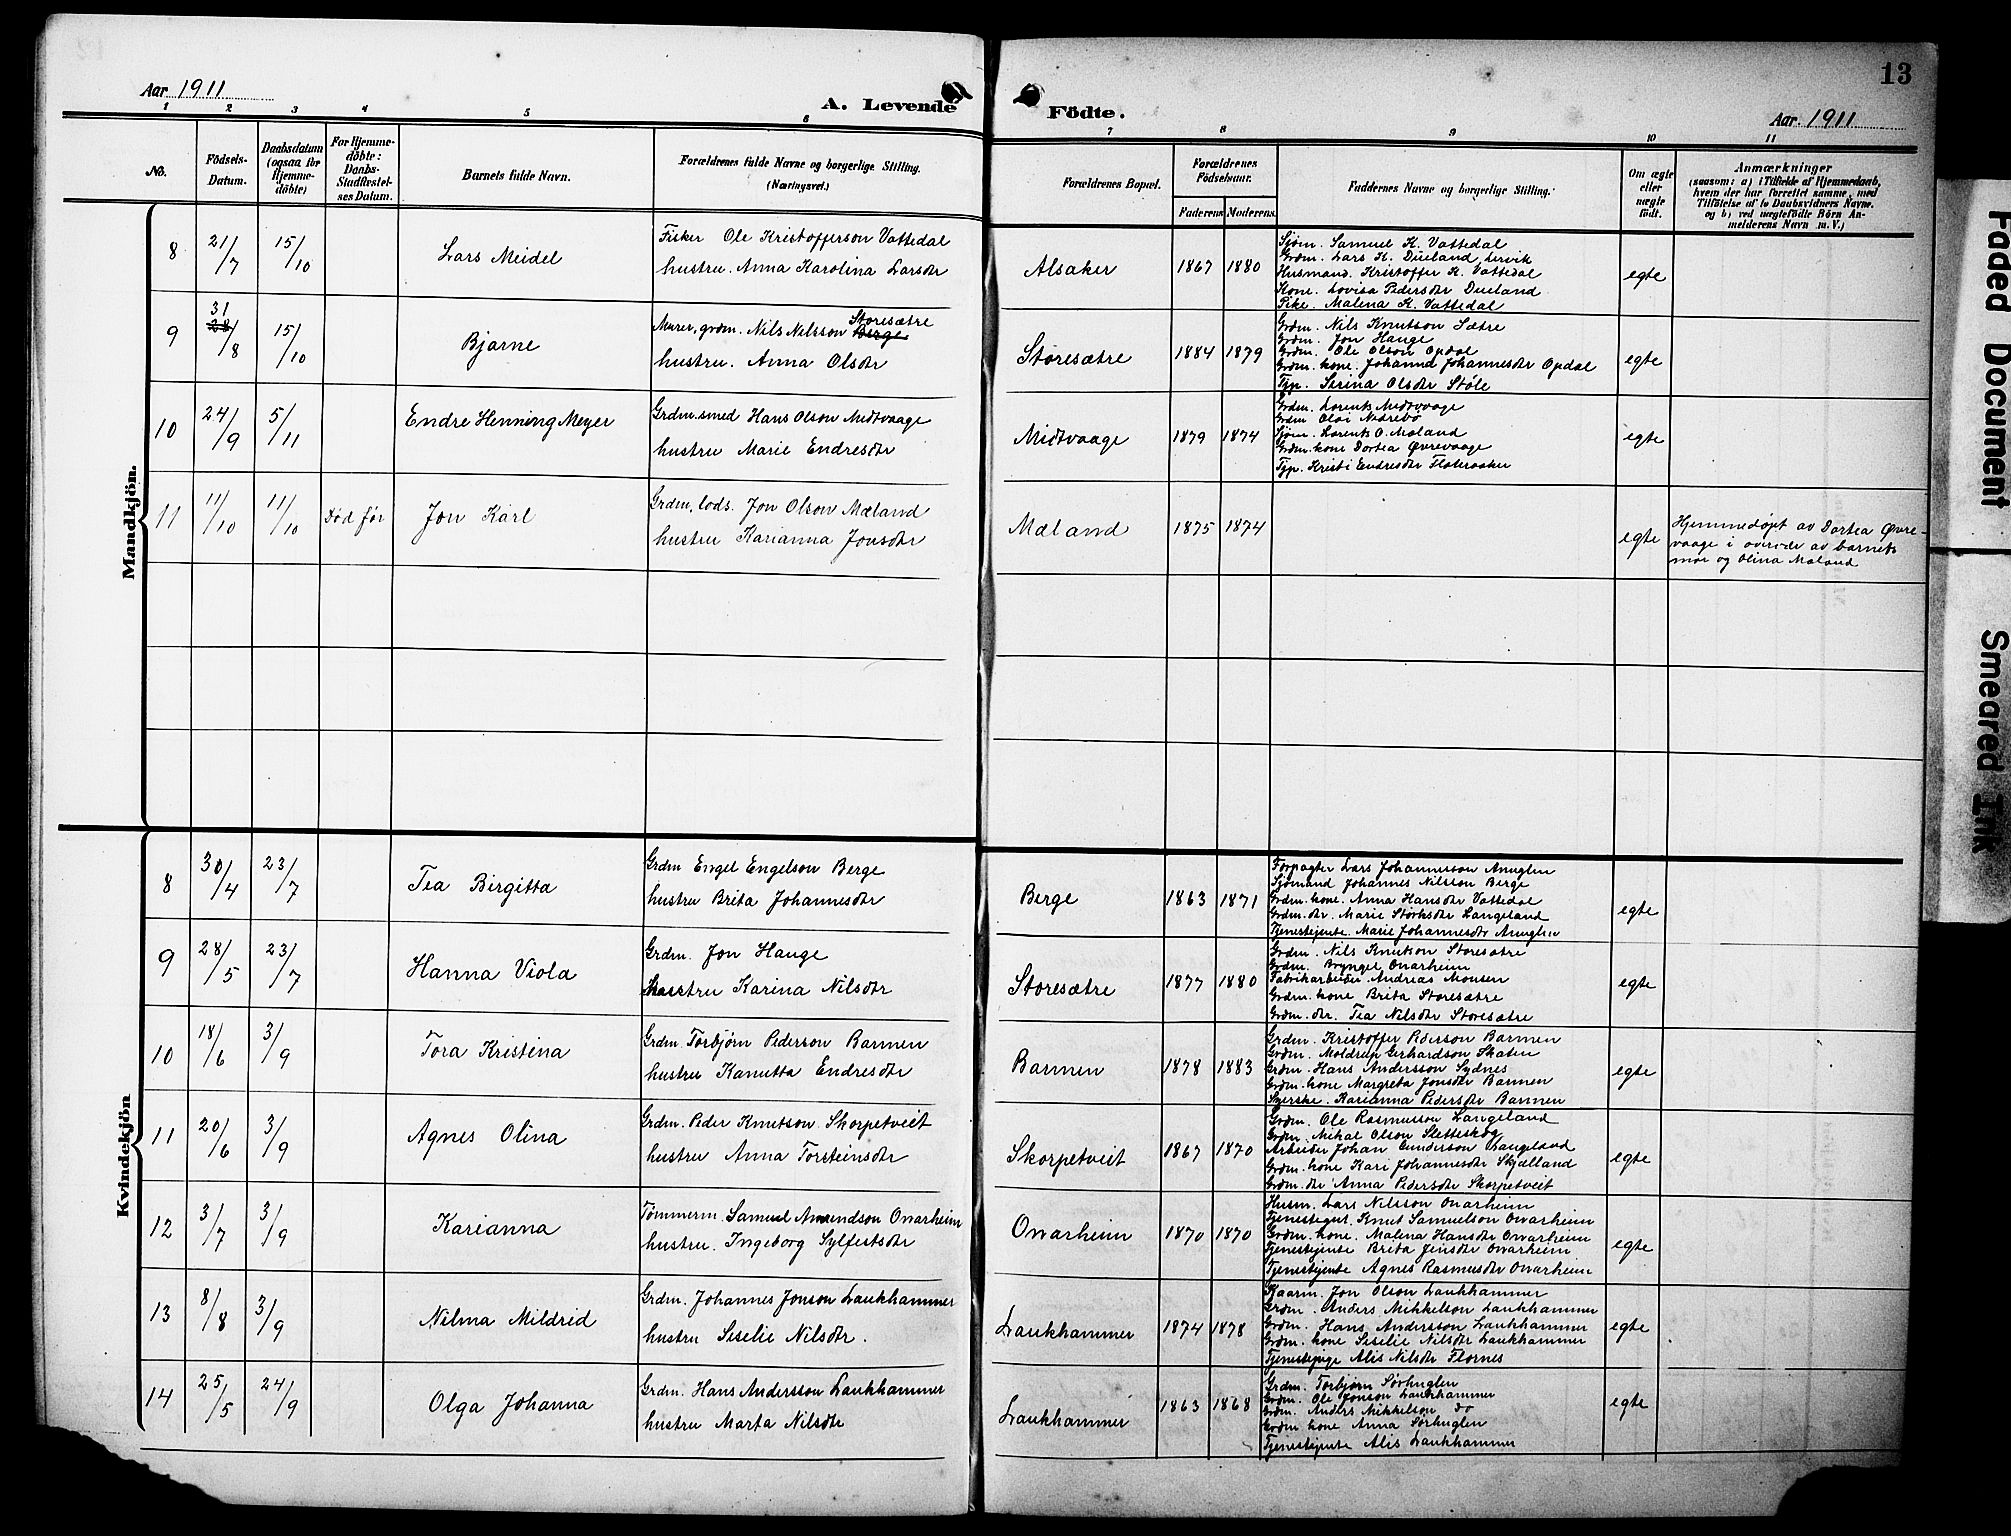 Aar 1911
A. Levende Födte.
13
Aar 1911
1 2 3 4 5 6 7 8 9 10 11
No.
Födsels-Datum.
Daabsdatum (ogsaa for Hjemmedöbte)
For Hjemmedöbte: Daabs-Stadfæstelses Datum.
Barnets fulde Navn.
Forældrenes fulde Navne og borgerlige Stilling. (Næringsvei.)
Forældrenes Bopæl.
Forældrenes Födselsaar.
Faderens Moderens.
Faddernes Navne og borgerlige Stilling.
Om ægte eller uægte födt.
Anmærkninger
(saasom: a) i Tilfælde af Hjemmedaab,
hvem der har forrettet samme, med
Tilföielse af to Daabsvidners Navne.
og b) ved uægtefödte Börn An-
melderens Navn m. V.)
Mandkjön.
8 21/7 15/10 Lars Meidel
Fisker Ole Kristofferson Vattedal
hustru. Anna Karolina Larsdtr
Alsaker 1867 1880
Sjøm. Samuel K. Vattedal
Grdm. Lars K. Dueland Lervik
Husmand. Kristoffer K. Vattedal
Kone. Lovisa Pedersdtr Dueland
Pike. Malena K. Vattedal
egte
9 31 28/8 15/10 Bjarne
Murer, grdm. Nils Nilsson Berge Storesætre
hustru. Anna Olsdtr
Storesætre 1884 1879
Grdm. Nils Knutson Sætre
Grdm. Jon Hauge
Grdm. Ole Olson Opdal
Grdm. kone. Johanna Johannesdtr Opdal
Typ. Serina Olsdtr Støle
egte
10 24/9 5/11 Endre Henning Meyer
Grdm. smed Hans Olson Midtvaage
hustru Marie Endresdtr
Midtvaage 1879 1874
Grdm. Lorents Midtvaage
Grdm Olai Nedrebø
Sjøm. Lorents O. Mæland
Grdm. kone Dortea Øvrevaage
Typ. Kristi Endresdtr Flateraaker
egte
11 11/10 11/10 Død før Jon Karl
Grdm, lods. Jon Olson Mæland
hustru Karianna Jonsdtr
Mæland 1875 1874
egte
Hjemmedøpt av Dortea Øvre-
vaage i overvær av barnets
mor og Olina Mæland
Kvindekjön
8 30/4 23/7 Tea Birgitta
Grdm Engel Engelson Berge
hustru Brita Johannesdtr
Berge 1863 1871
Forpagter Lars Johannesson Anuglen
Sjømand Johannes Nilsson Berge
Grdm. kone. Anna Hansdtr Vattedal
Grdm. dtr. Marie Størksdtr Langeland
Tjenestejente. Marie Johannesdtr Anuglen
egte
9 28/5 23/7 Hanna Viola
Grdm. Jon Hauge
hustru Karina Nilsdtr
Storesætre 1877 1880
Grdm. Nils Knutson Storesætre
Grdm. Bryngel Onarheim
Fabrikarbeider. Andreas Monsen
Grdm. kone Brita Storesætre
Grdm. dtr. Tea Nilsdtr Storesætre
egte
10 18/6 3/9 Tora Kristina
Grdm. Torbjørn Pederson Barmen
hustru Kanutta Endresdtr
Barmen 1878 1883
Grdm. Kristoffer Pederson Barmen
Grdm. Moldrup Gerhardson Skaten
Grdm. Hans Andersson Sydnes
Grdm. kone Margreta Jonsdtr Barmen
Syerske. Karianna Pedersdtr Barmen
egte
11 20/6 3/9 Agnes Olina
Grdm. Peder Knutson Skorpetveit
hustru Anna Torsteinsdtr
Skorpetveit 1867 1870
Grdm. Ole Rasmusson Langeland
Grdm. Mikal Olson Sletteskog
Arbeider Johan Gunderson Langeland
Grdm. kone Kari Johannesdtr Skjælland
Grdm. dtr Anna Pedersdtr Skorpetveit
egte
12 3/7 3/9 Karianna
Tømmerm. Samuel Amundson Onarheim
hustru. Ingeborg Sylfestsdtr
Onarheim 1870 1870
Husm. Lars Nilsson Onarheim
Tjenestegut. Knut Samuelson Onarheim
Grdm. kone. Malena Hansdtr Onarheim
Tjenestejente Brita Jensdtr Onarheim
Tjenestejente Agnes Rasmusdtr Onarheim
egte
13 8/8 3/9 Nilma Mildrid
Grdm. Johannes Jonson Laukhammer
hustru Siselie Nilsdtr.
Laukhammer 1874 1878
Kaarm. Jon Olson Laukhammer
Grdm. Anders Mikkelson Laukhammer
Grdm. Hans Andersson Laukhammer
Grdm. kone Siselie Nilsdtr Laukhammer
Tjenestepige Alis Nilsdtr Flornes
egte
14 25/5 24/9 Olga Johanna
Grdm. Hans Andersson Laukhammer
hustru Marta Nilsdtr
Laukhammer 1863 1868
Grdm. Torbjørn Sørhuglen
Grdm. Ole Jonson Laukhammer
Grdm. Anders Mikkelson do
Grdm kone Anna Sørhuglen
Tjenestejente Alis Laukhammer
egte
Faded Document
Smeared Ink